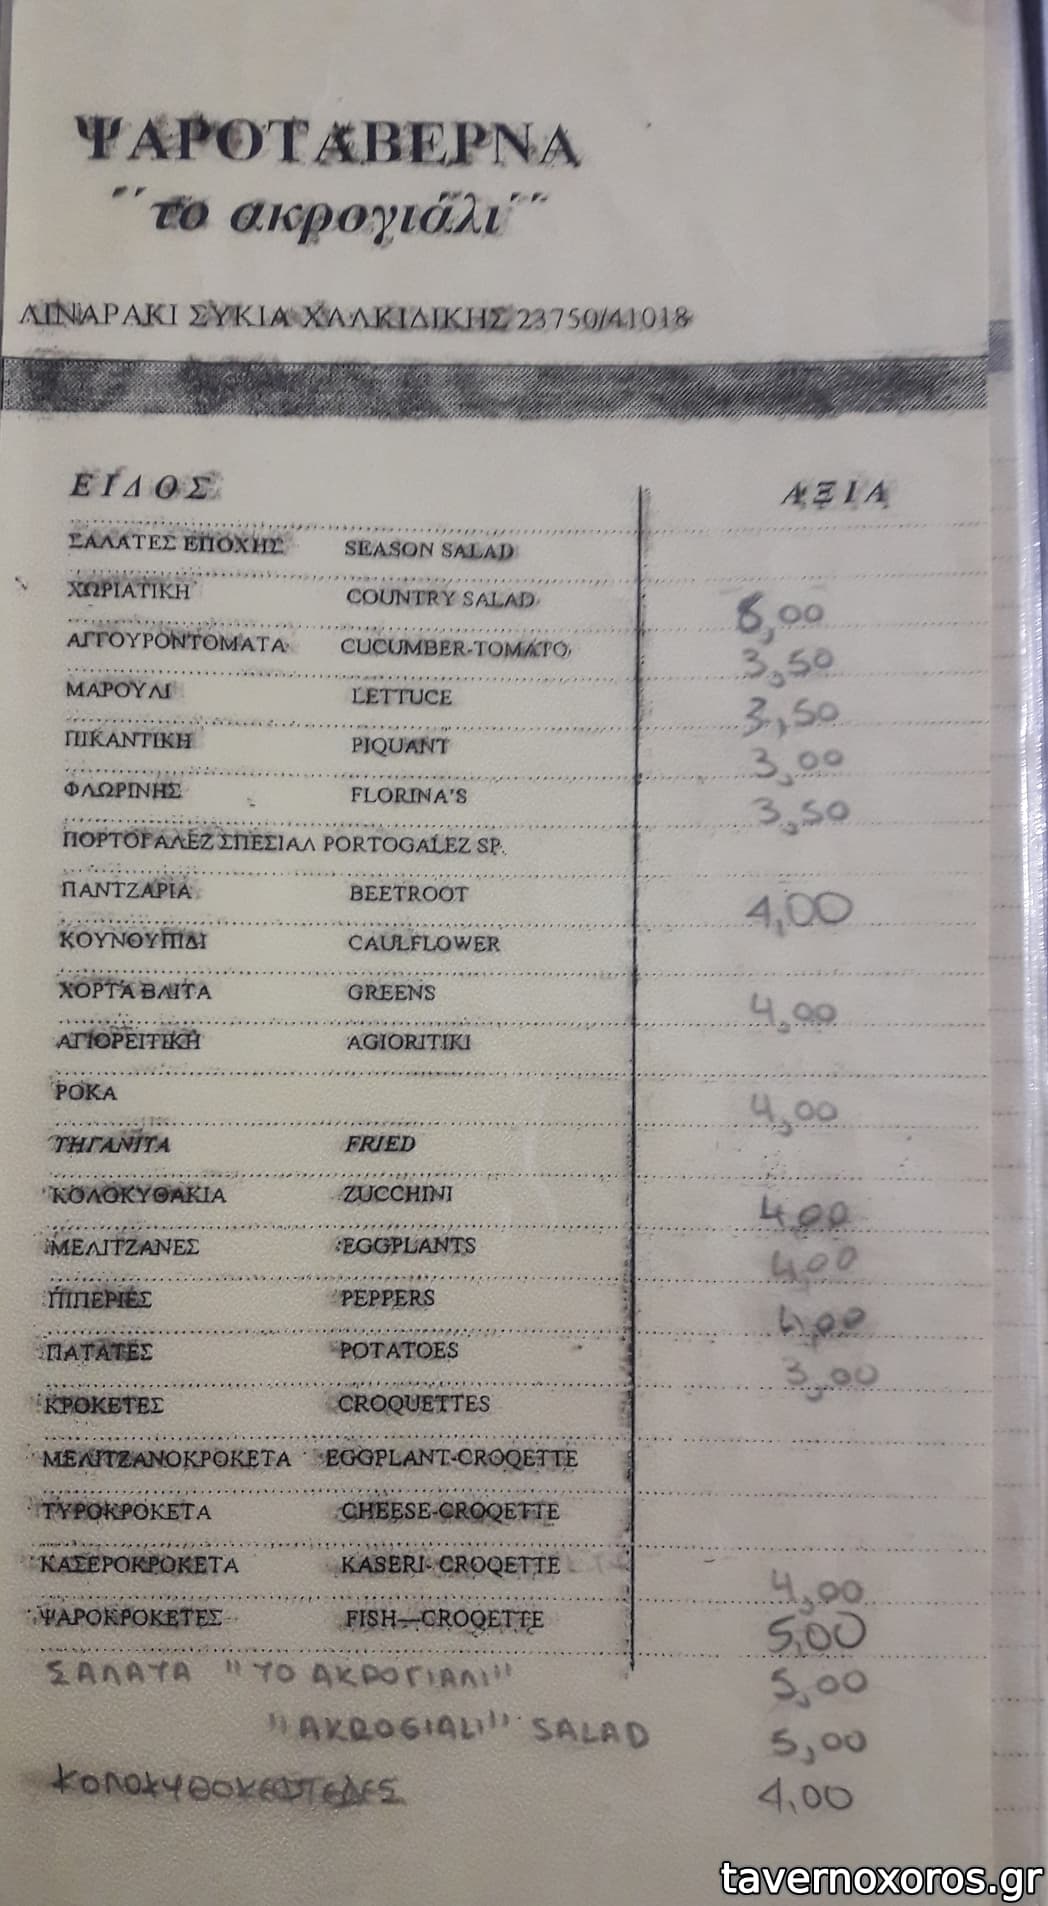 ΨΑΡΟΤΑΒΕΡΝΑ
΄΄το ακρογιάλι΄΄
ΛΙΝΑΡΑΚΙ ΣΥΚΙΑ ΧΑΛΚΙΔΙΚΗΣ 23750/41018
ΕΙΔΟΣ ΑΞΙΑ
ΣΑΛΑΤΕΣ ΕΠΟΧΗΣ SEASON SALAD
ΧΩΡΙΑΤΙΚΗ COUNTRY SALAD 6,00
ΑΓΓΟΥΡΟΝΤΟΜΑΤΑ CUCUMBER-TOMATO 3,50
ΜΑΡΟΥΛΙ LETTUCE 3,50
ΠΙΚΑΝΤΙΚΗ PIQUANT 3,00
ΦΛΩΡΙΝΗΣ FLORINA'S 3,50
ΠΟΡΤΟΓΑΛΕΖ ΣΠΕΣΙΑΛ PORTOGALEZ SP.
ΠΑΝΤΖΑΡΙΑ BEETROOT 4,00
ΚΟΥΝΟΥΠΙΔΙ CAULFLOWER
ΧΟΡΤΑ ΒΛΙΤΑ GREENS 4,00
ΑΓΙΟΡΕΙΤΙΚΗ AGIORITIKI
ΡΟΚΑ 4,00
ΤΗΓΑΝΙΤΑ FRIED
ΚΟΛΟΚΥΘΑΚΙΑ ZUCCHINI 4,00
ΜΕΛΙΤΖΑΝΕΣ EGGPLANTS 4,00
ΠΙΠΕΡΙΕΣ PEPPERS 4,00
ΠΑΤΑΤΕΣ POTATOES 3,00
ΚΡΟΚΕΤΕΣ CROQUETTES
ΜΕΛΙΤΖΑΝΟΚΡΟΚΕΤΑ EGGPLANT-CROQETTE
ΤΥΡΟΚΡΟΚΕΤΑ CHEESE-CROQETTE
ΚΑΣΕΡΟΚΡΟΚΕΤΑ KASERI- CROQETTE 4,00
ΨΑΡΟΚΡΟΚΕΤΕΣ FISH—CROQETTE 5,00
ΣΑΛΑΤΑ "ΤΟ ΑΚΡΟΓΙΑΛΙ" 5,00
"AKROGIALI" SALAD 5,00
ΚΟΛΟΚΥΘΟΚΕΦΤΕΔΕΣ 4,00
tavernoxoros.gr